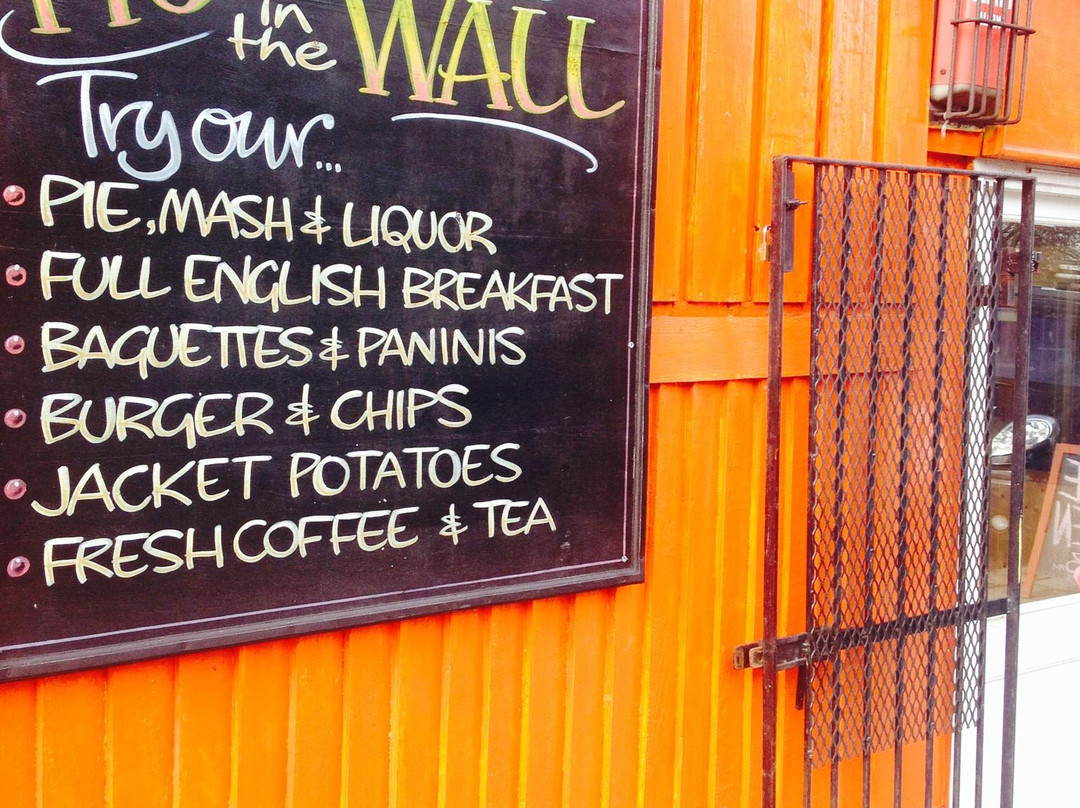 in
the
WALL
Try our...
PIE, MASH & LIQUOR
FULL ENGLISH BREAKFAST
BAGUETTES & PANINIS
BURGER & CHIPS
JACKET POTATOES
FRESH COFFEE & TEA